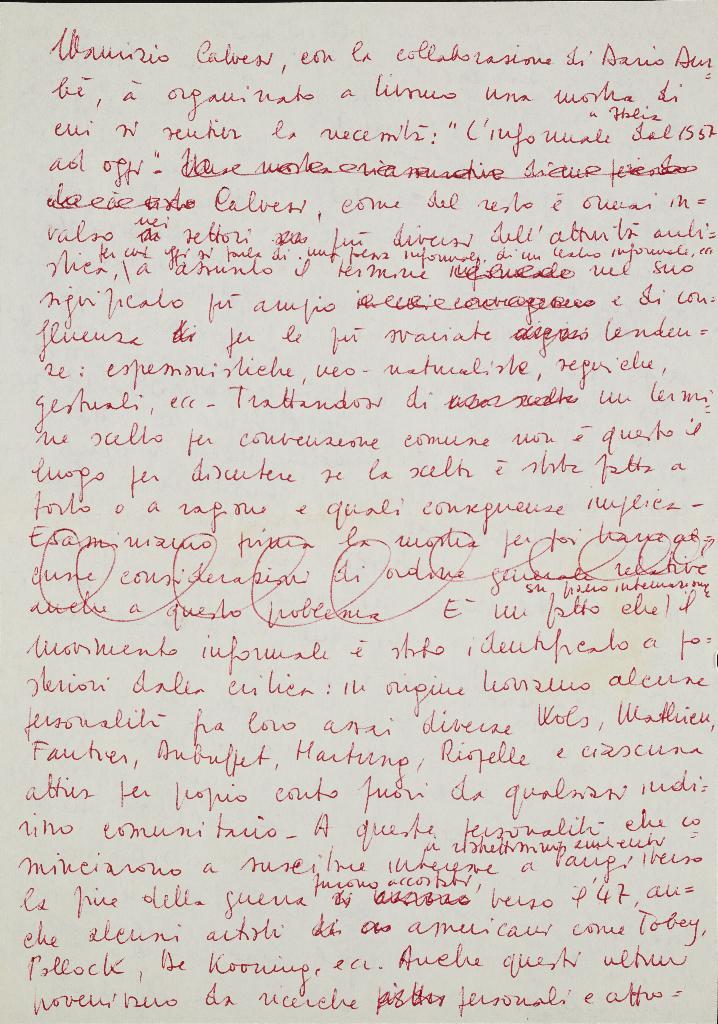 Maurizio Calvesi, con la collaborazione di Dario Dur=
bé, à organizzato a Livorno una mostra di
cui si sentiva la necessità: "L'informale in Italia dal 1957
ad oggi"-
Calvesi, come del resto è ormai in=
valso nei settori più diversi dell'attività arti=
per cui oggi si parla di una poesia informale, di un teatro informale, ecc
stica, à assunto il termine nel suo
significato più ampio e di con=
fluenza per le più svariate tenden=
ze: espressionistiche, neo-naturaliste, segniche,
gestuali, ecc- Trattandosi di un termi=
ne scelto per convenzione comune non è questo il
luogo per discutere se la scelta è stata fatta a
torto o a ragione e quali conseguenze implica-
Esaminiamo prima la mostra per poi
cune considerazioni di ordine generale relative
su piano internazione
anche a questo problema E' un fatto che il
movimento informale è stato identificato a po=
steriori dalla critica: in origine troviamo alcune
personalità fra loro assai diverse Wols, Mathieu,
Fautrier, Dubuffet, Hartung, Riopelle e ciascuna
attiva per proprio conto fuori da qualsiasi indi=
rizzo comunitario- A queste personalità che co=
in ristrettissimi
minciarono a suscitare interesse a Parigi verso
la fine della guerra furono accostati, verso il '47, an=
che alcuni artisti americani come Tobey,
Pollock, De Kooning, ecc. Anche questi ultimi
provenivano da ricerche personali e attra=